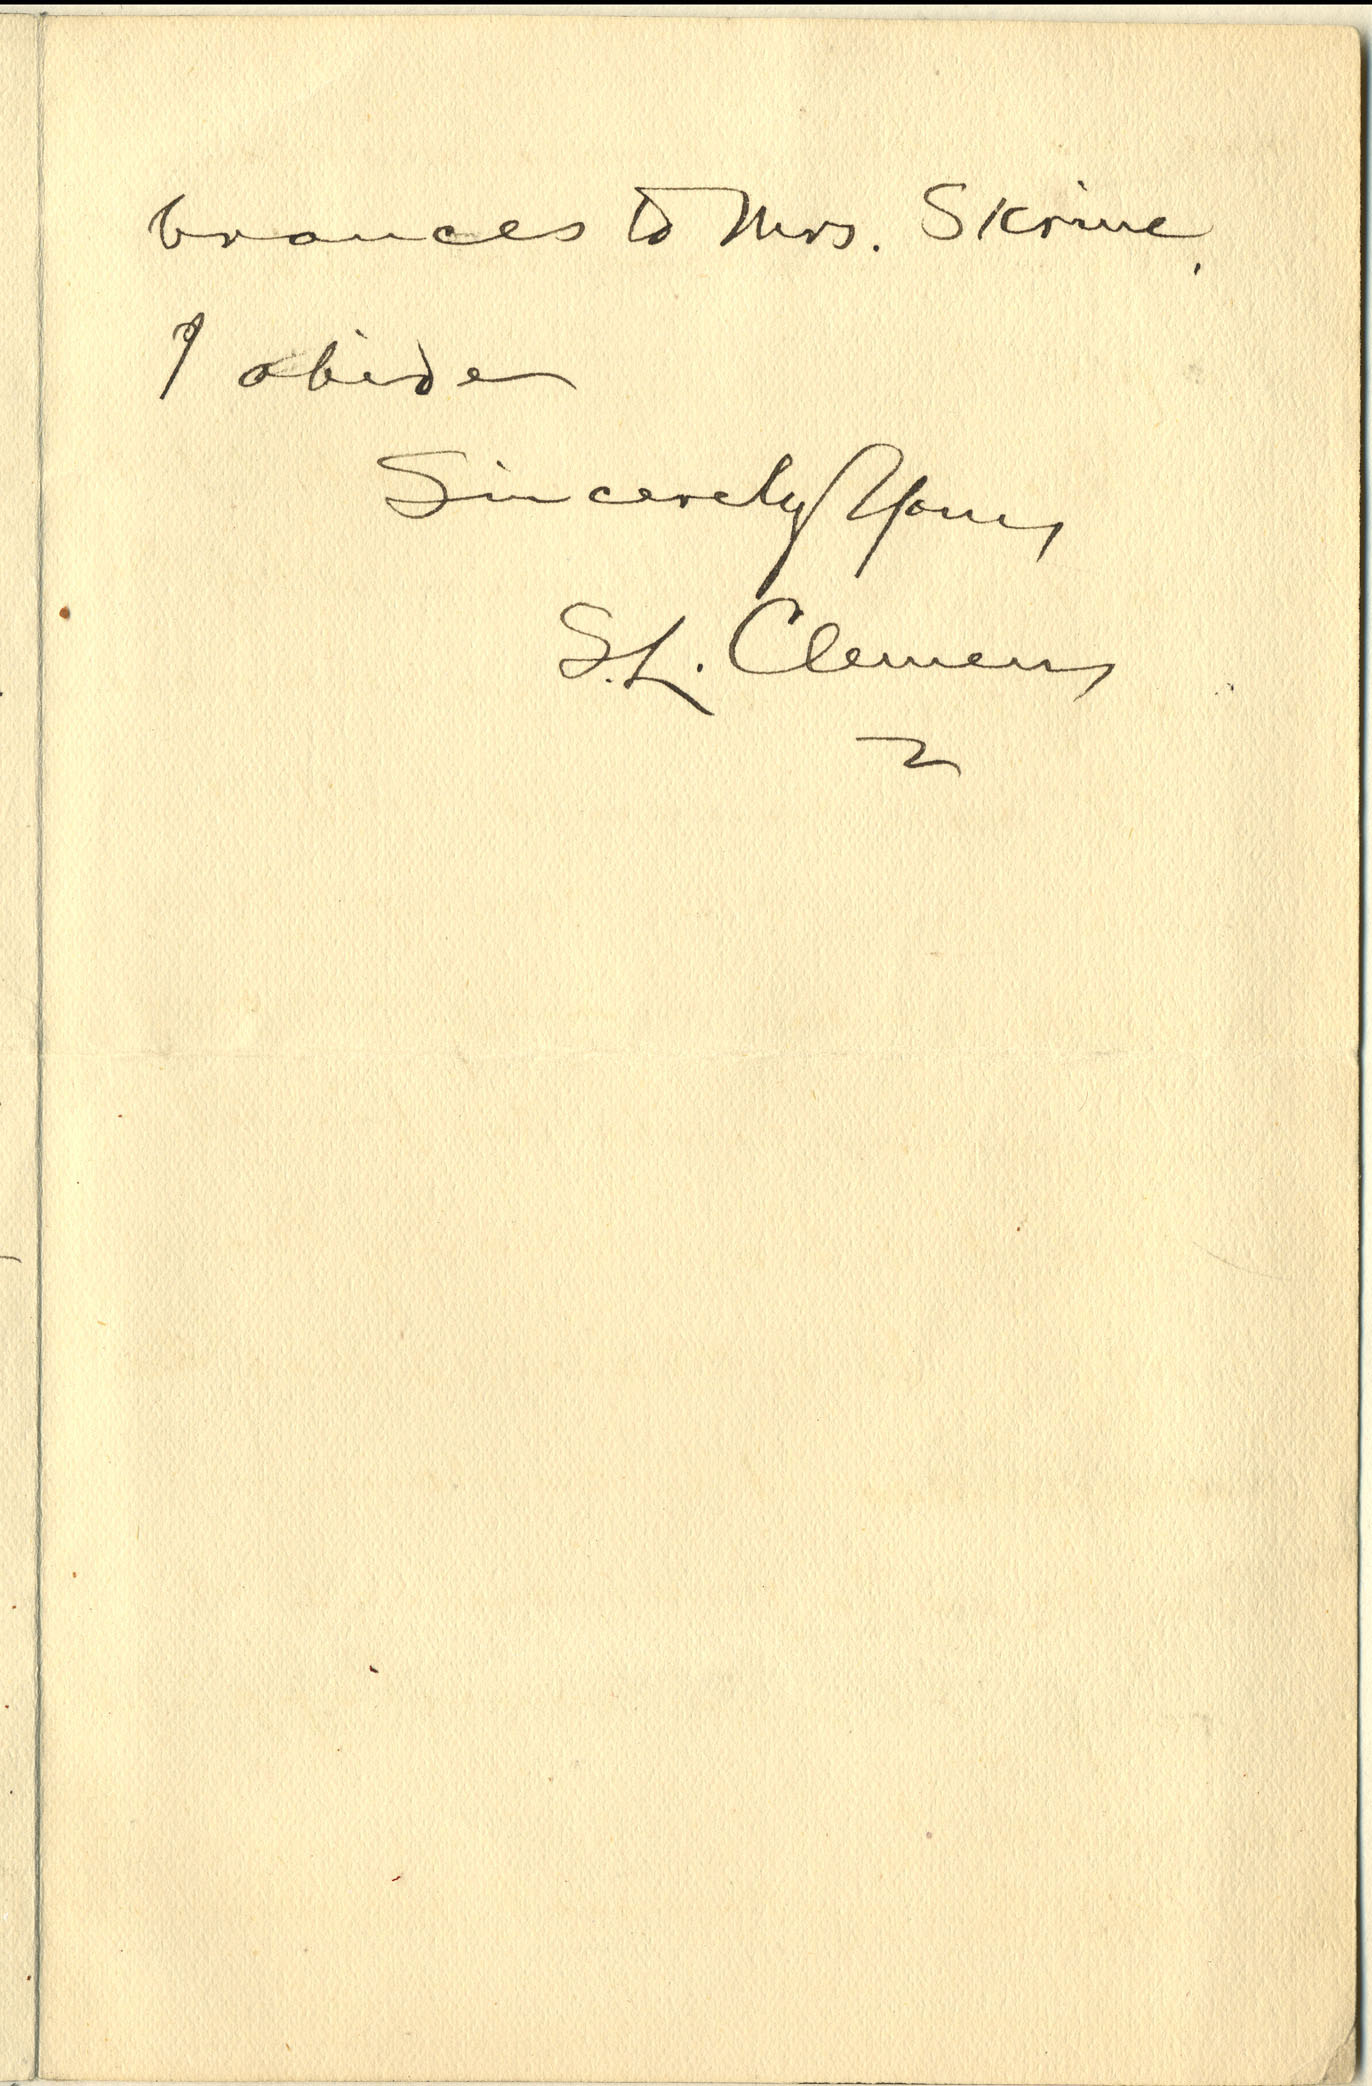 brances to Mrs. Skrine,
I abide
Sincerely Yours
S.L. Clemens